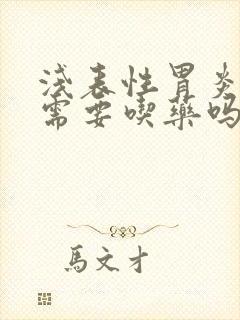 浅表性胃炎
需要喫藥吗
馬文才